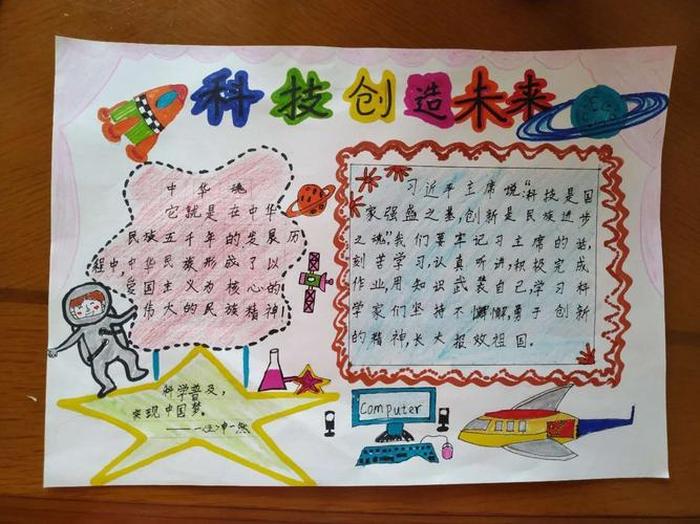 科技创造未来
中华魂
它就是在中华
民族五千年的发展历
程中,中华民族形成了以
爱国主义为核心的
伟大的民族精神!
习近平主席说:“科技是国
家强盛之基,创新是民族进步
之魂”我们要牢记习主席的话,
刻苦学习,认真听讲,积极完成
作业,用知识武装自己,学习科
学家们坚持不懈懈,勇于创新
的精神,长大报效祖国。
科学普及,
实现中国梦。
Computer